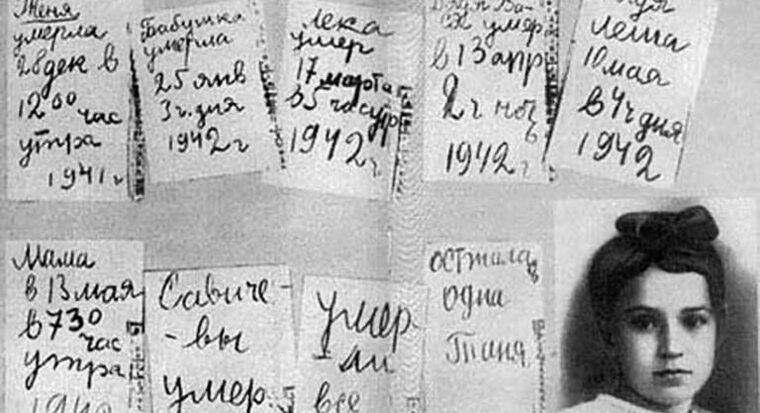 Женя
умерла
28 дек в
12 00 час
утра
1941 г
Бабушка
умерла
25 янв
3 ч. дня
1942 г
Лека
умер
17 марта
в 5 час утр
1942 г
Вася умер
в 13 апр
2 ч ночь
1942 г
Леша
10 мая
в 4 ч дня
1942
Мама
в 13 мая
в 7 30
час
утра
1942
Савиче-
-вы
умер.
умер-
-ли
все
осталась
одна
Таня